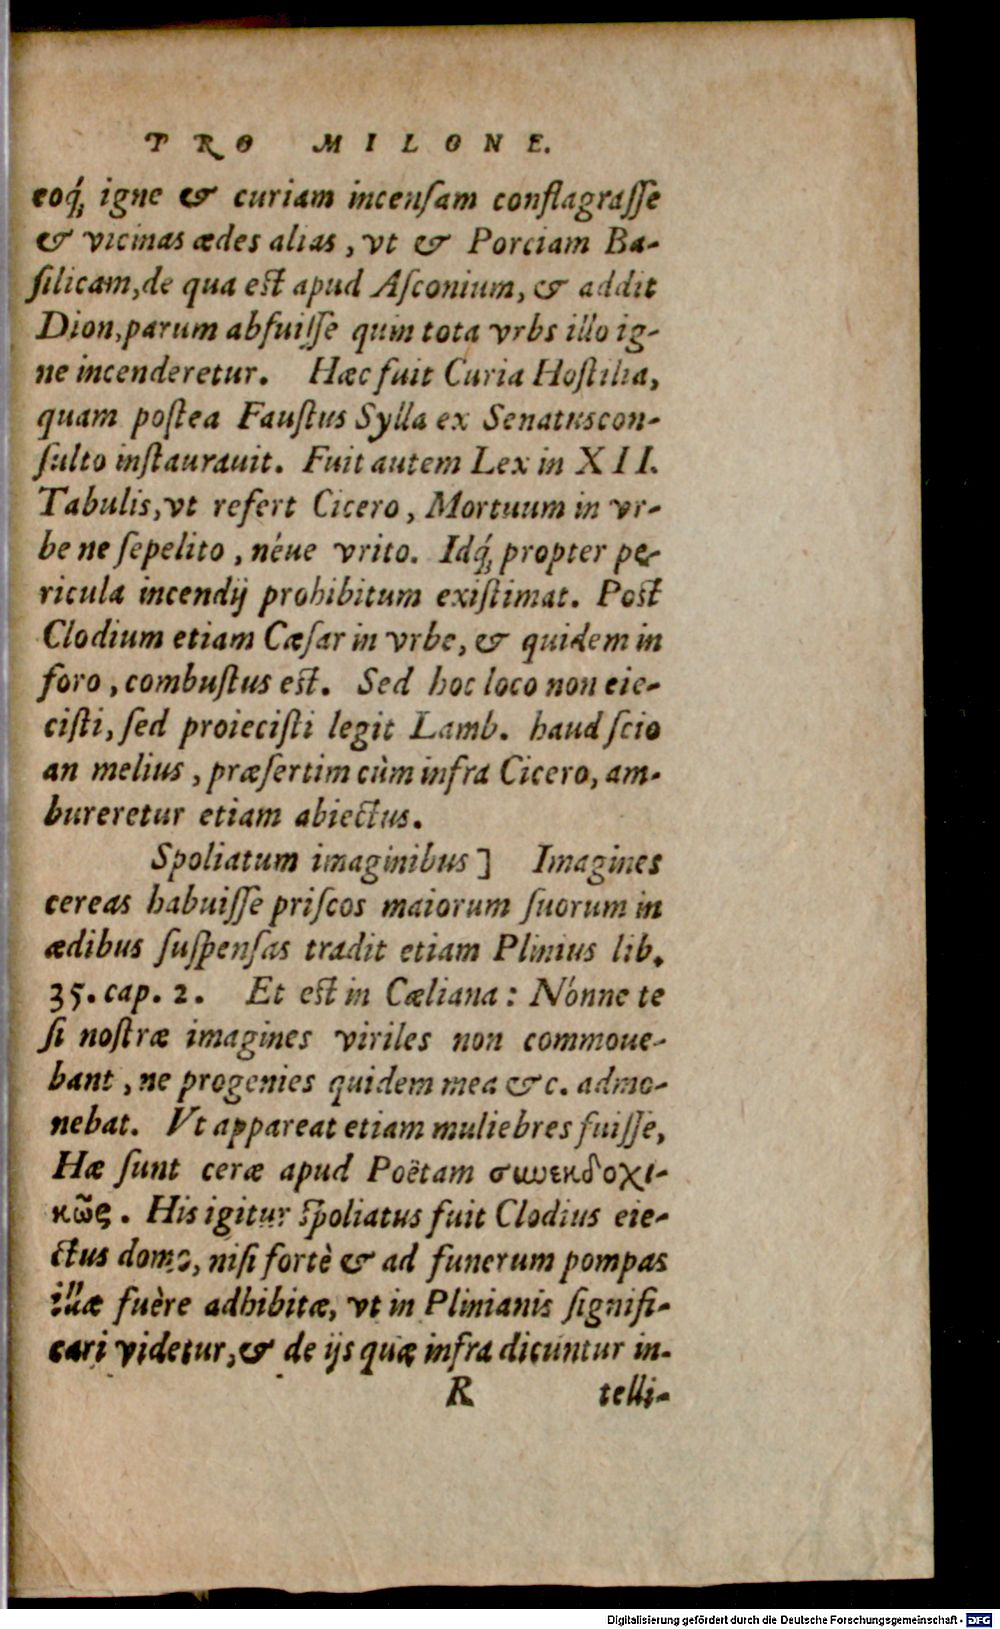 PRO MILONE.
eoq́; igne & curiam incenſam conflagraſſe
& vicinas ædes alias, vt & Porciam Ba-
ſilicam, de qua eſt apud Aſconium, & addit
Dion, parum abfuiſſe quin tota vrbs illo ig-
ne incenderetur. Hæc fuit Curia Hoſtilia,
quam poſtea Fauſtus Sylla ex Senatuscon-
ſulto inſtaurauit. Fuit autem Lex in XII.
Tabulis, vt refert Cicero, Mortuum in vr-
be ne ſepelito, néue vrito. Idq́; propter pe-
ricula incendij prohibitum exiſtimat. Poſt
Clodium etiam Cæſar in vrbe, & quidem in
foro, combuſtus eſt. Sed hoc loco non eie-
ciſti, ſed proieciſti legit Lamb. haud ſcio
an melius, præſertim cùm infra Cicero, am-
bureretur etiam abiectus.
Spoliatum imaginibus] Imagines
cereas habuiſſe priſcos maiorum ſuorum in
ædibus ſuſpenſas tradit etiam Plinius lib.
35. cap. 2. Et eſt in Cæliana: Nónne te
ſi noſtræ imagines viriles non commoue-
bant, ne progenies quidem mea &c. admo-
nebat. Vt appareat etiam muliebres fuiſſe,
Hæ ſunt ceræ apud Poëtam συνεκδοχι-
κῶς. His igitur ſpoliatus fuit Clodius eie-
ctus domo, niſi fortè & ad funerum pompas
illæ fuère adhibitæ, vt in Plinianis ſignifi-
cari videtur, & de ijs quæ infra dicuntur in-
R telli-
Digitalisierung gefördert durch die Deutsche Forschungsgemeinschaft - DFG